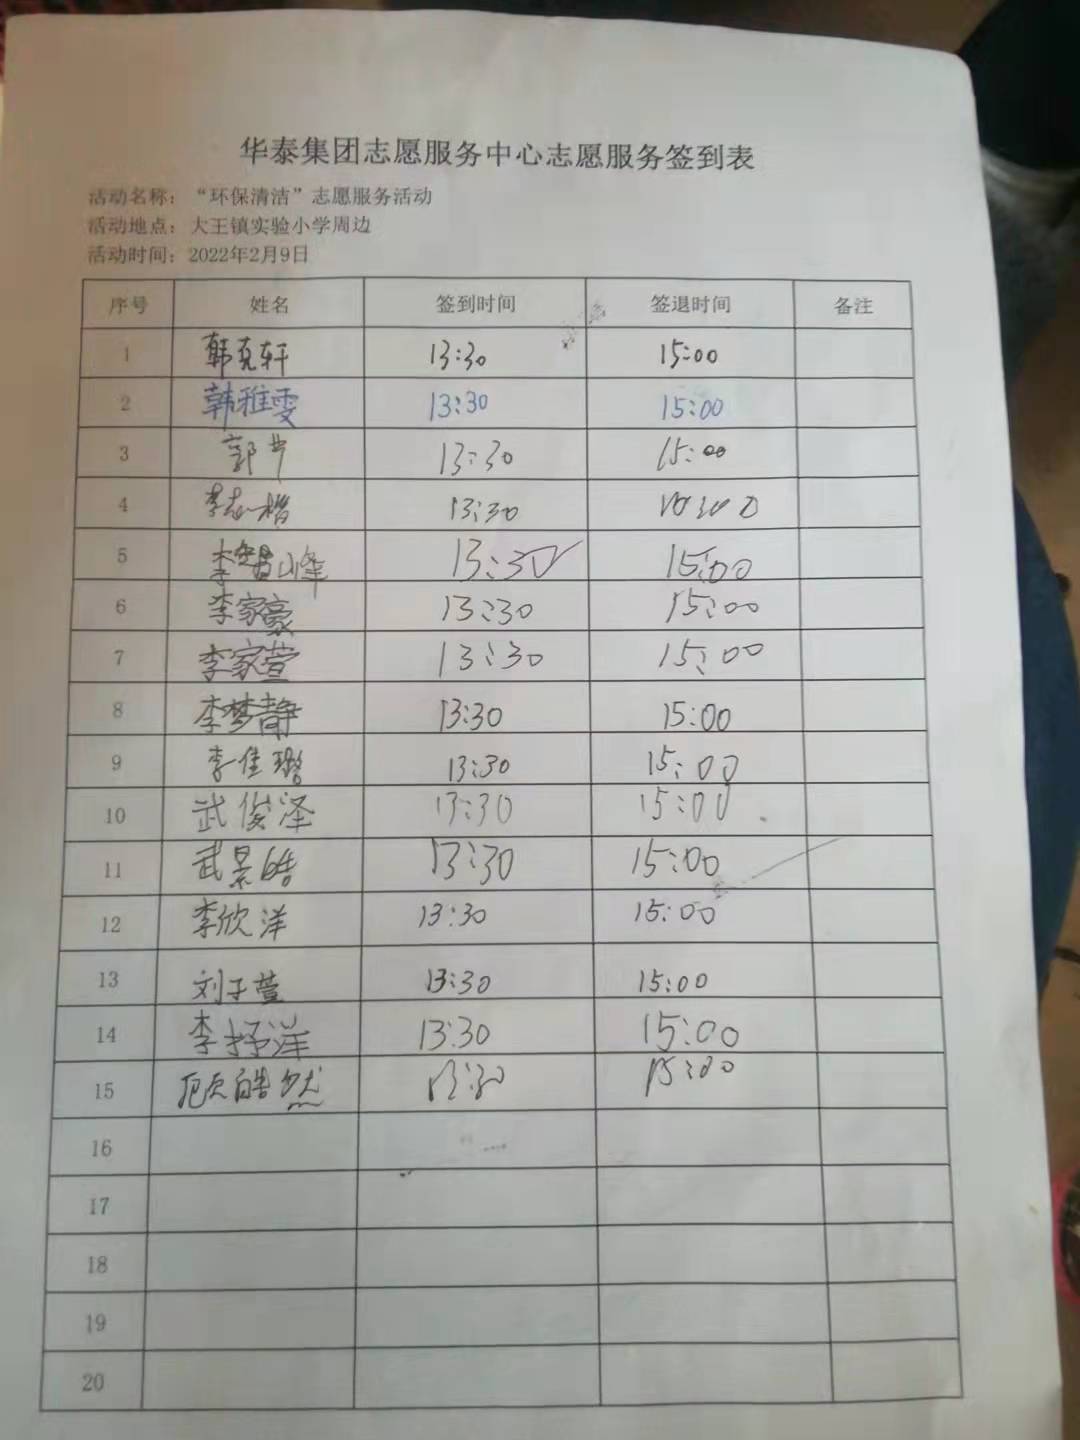 华泰集团志愿服务中心志愿服务签到表
活动名称：“环保清洁”志愿服务活动
活动地点：大王镇实验小学周边
活动时间：2022年2月9日
序号 姓名 签到时间 签退时间 备注
1 韩克轩 13:30 15:00
2 韩雅雯 13:30 15:00
3 13:30 15:00
4 李志楷 13:30
5 李智峰 13:30 15:00
6 李家豪 13:30 15:00
7 李家萱 13:30 15:00
8 李梦静 13:30 15:00
9 李佳璐 13:30 15:00
10 武俊泽 13:30 15:00
11 武景皓 13:30 15:00
12 李欣洋 13:30 15:00
13 刘子萱 13:30 15:00
14 李抒洋 13:30 15:00
15 皓然 13:30 15:00
16
17
18
19
20